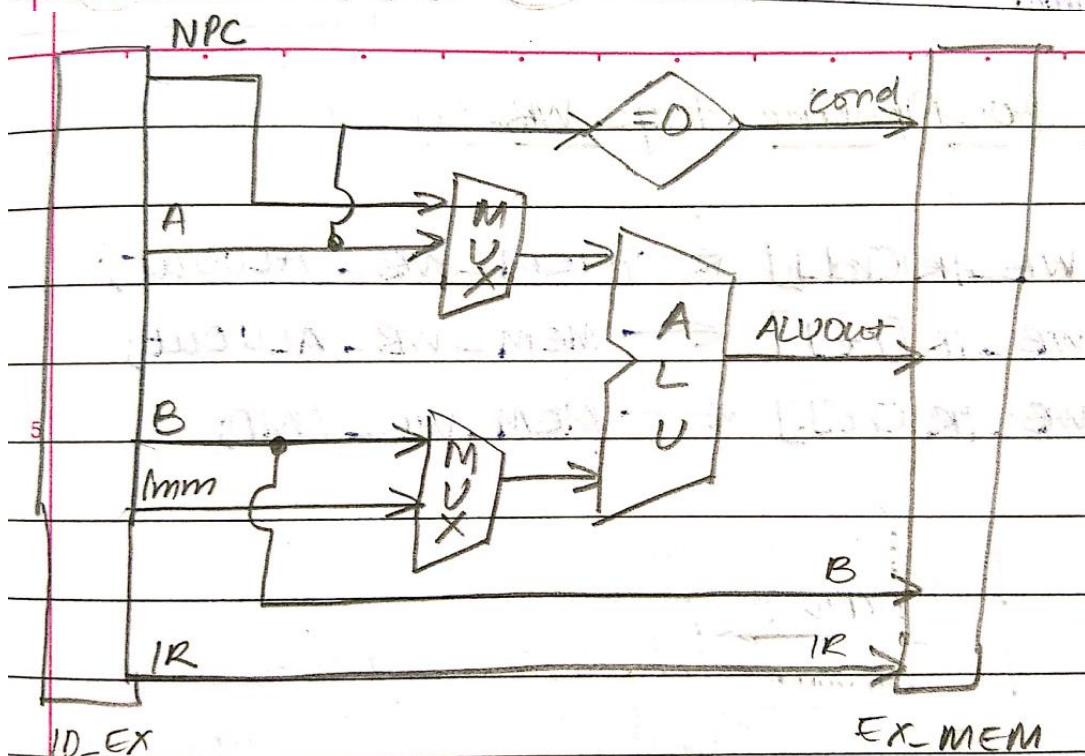 NPC
=0
cond
A
MUX
ALU
ALUOut
B
Imm
MUX
B
IR
IR
ID_EX
EX_MEM